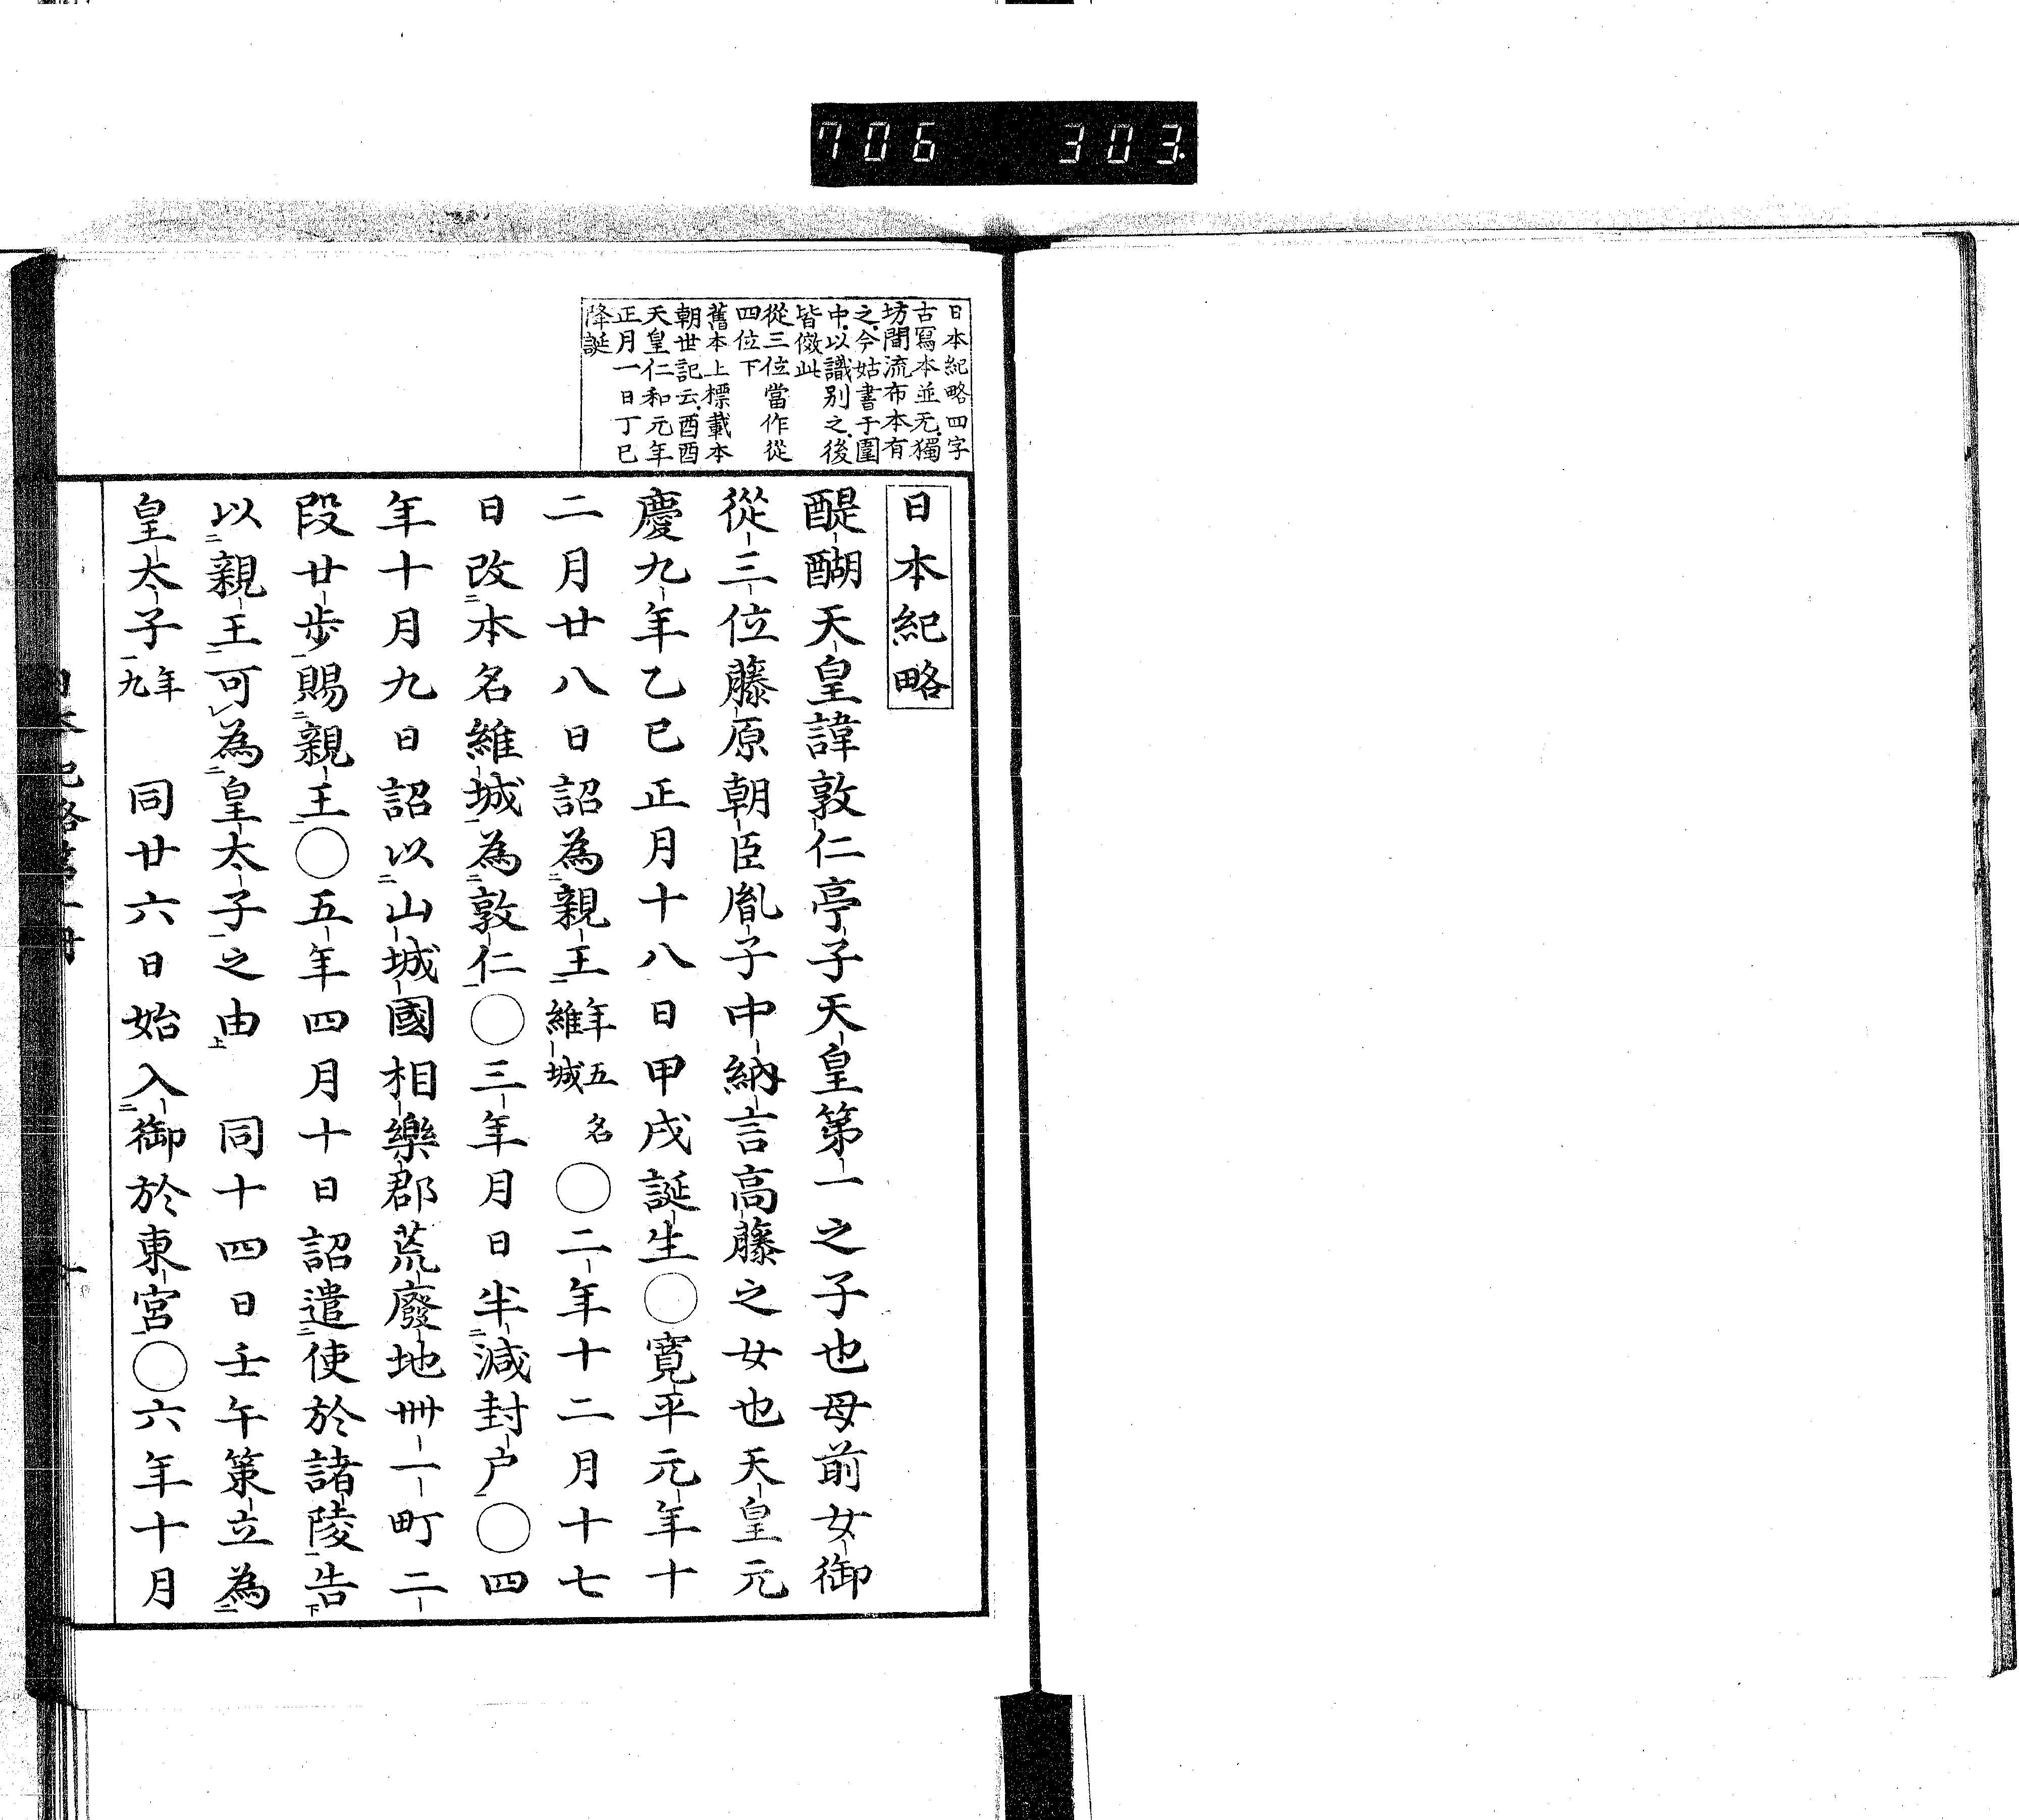 706 303.
日本紀略四字
古寫本並无獨
坊間流布本有
之今姑書于圍
中以識别之後
皆倣此
從三位當作從
四位下
舊本上標載本
朝世記云酉酉
天皇仁和元年
正月一日丁巳
降誕
日本紀略
醍醐天皇諱敦仁亭子天皇第一之子也母前女御
從三位藤原朝臣胤子中納言高藤之女也天皇元
慶九年乙巳正月十八日甲戌誕生〇寛平元年十
二月廿八日詔為親王年五名維城〇二年十二月十七
日改本名維城為敦仁〇三年月日半減封戸〇四
年十月九日詔以山城國相樂郡荒廢地卌一町二
段廿歩賜親王〇五年四月十日詔遣使於諸陵告
以親王可為皇太子之由 同十四日壬午策立為
皇太子年九 同廿六日始入御於東宮〇六年十月